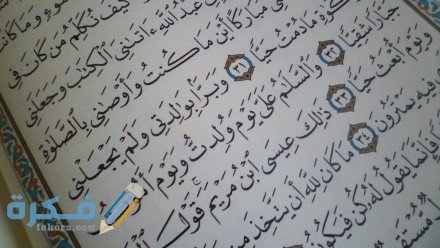 سَوْءٍ وَمَا كَانَتْ
كَيْفَ نُكَلِّمُ مَن كَانَ فِي
عَبْدُ اللَّهِ ءَاتَىٰنِيَ الْكِتَٰبَ وَجَعَلَنِي
مُبَارَكًا أَيْنَ مَا كُنتُ وَأَوْصَٰنِي بِالصَّلَوٰةِ
مَا دُمْتُ حَيًّا ٣١ وَبَرًّا بِوَٰلِدَتِي وَلَمْ يَجْعَلْنِي
جَبَّارًا شَقِيًّا ٣٢ وَالسَّلَٰمُ عَلَيَّ يَوْمَ وُلِدتُّ وَيَوْمَ
وَيَوْمَ أُبْعَثُ حَيًّا ٣٣ ذَٰلِكَ عِيسَى ابْنُ مَرْيَمَ قَوْلَ
فِيهِ يَمْتَرُونَ ٣٤ مَا كَانَ لِلَّهِ أَن يَتَّخِذَ مِن
فَإِنَّمَا يَقُولُ لَهُ كُن فَيَكُونُ
فكرة
Fokorn.com